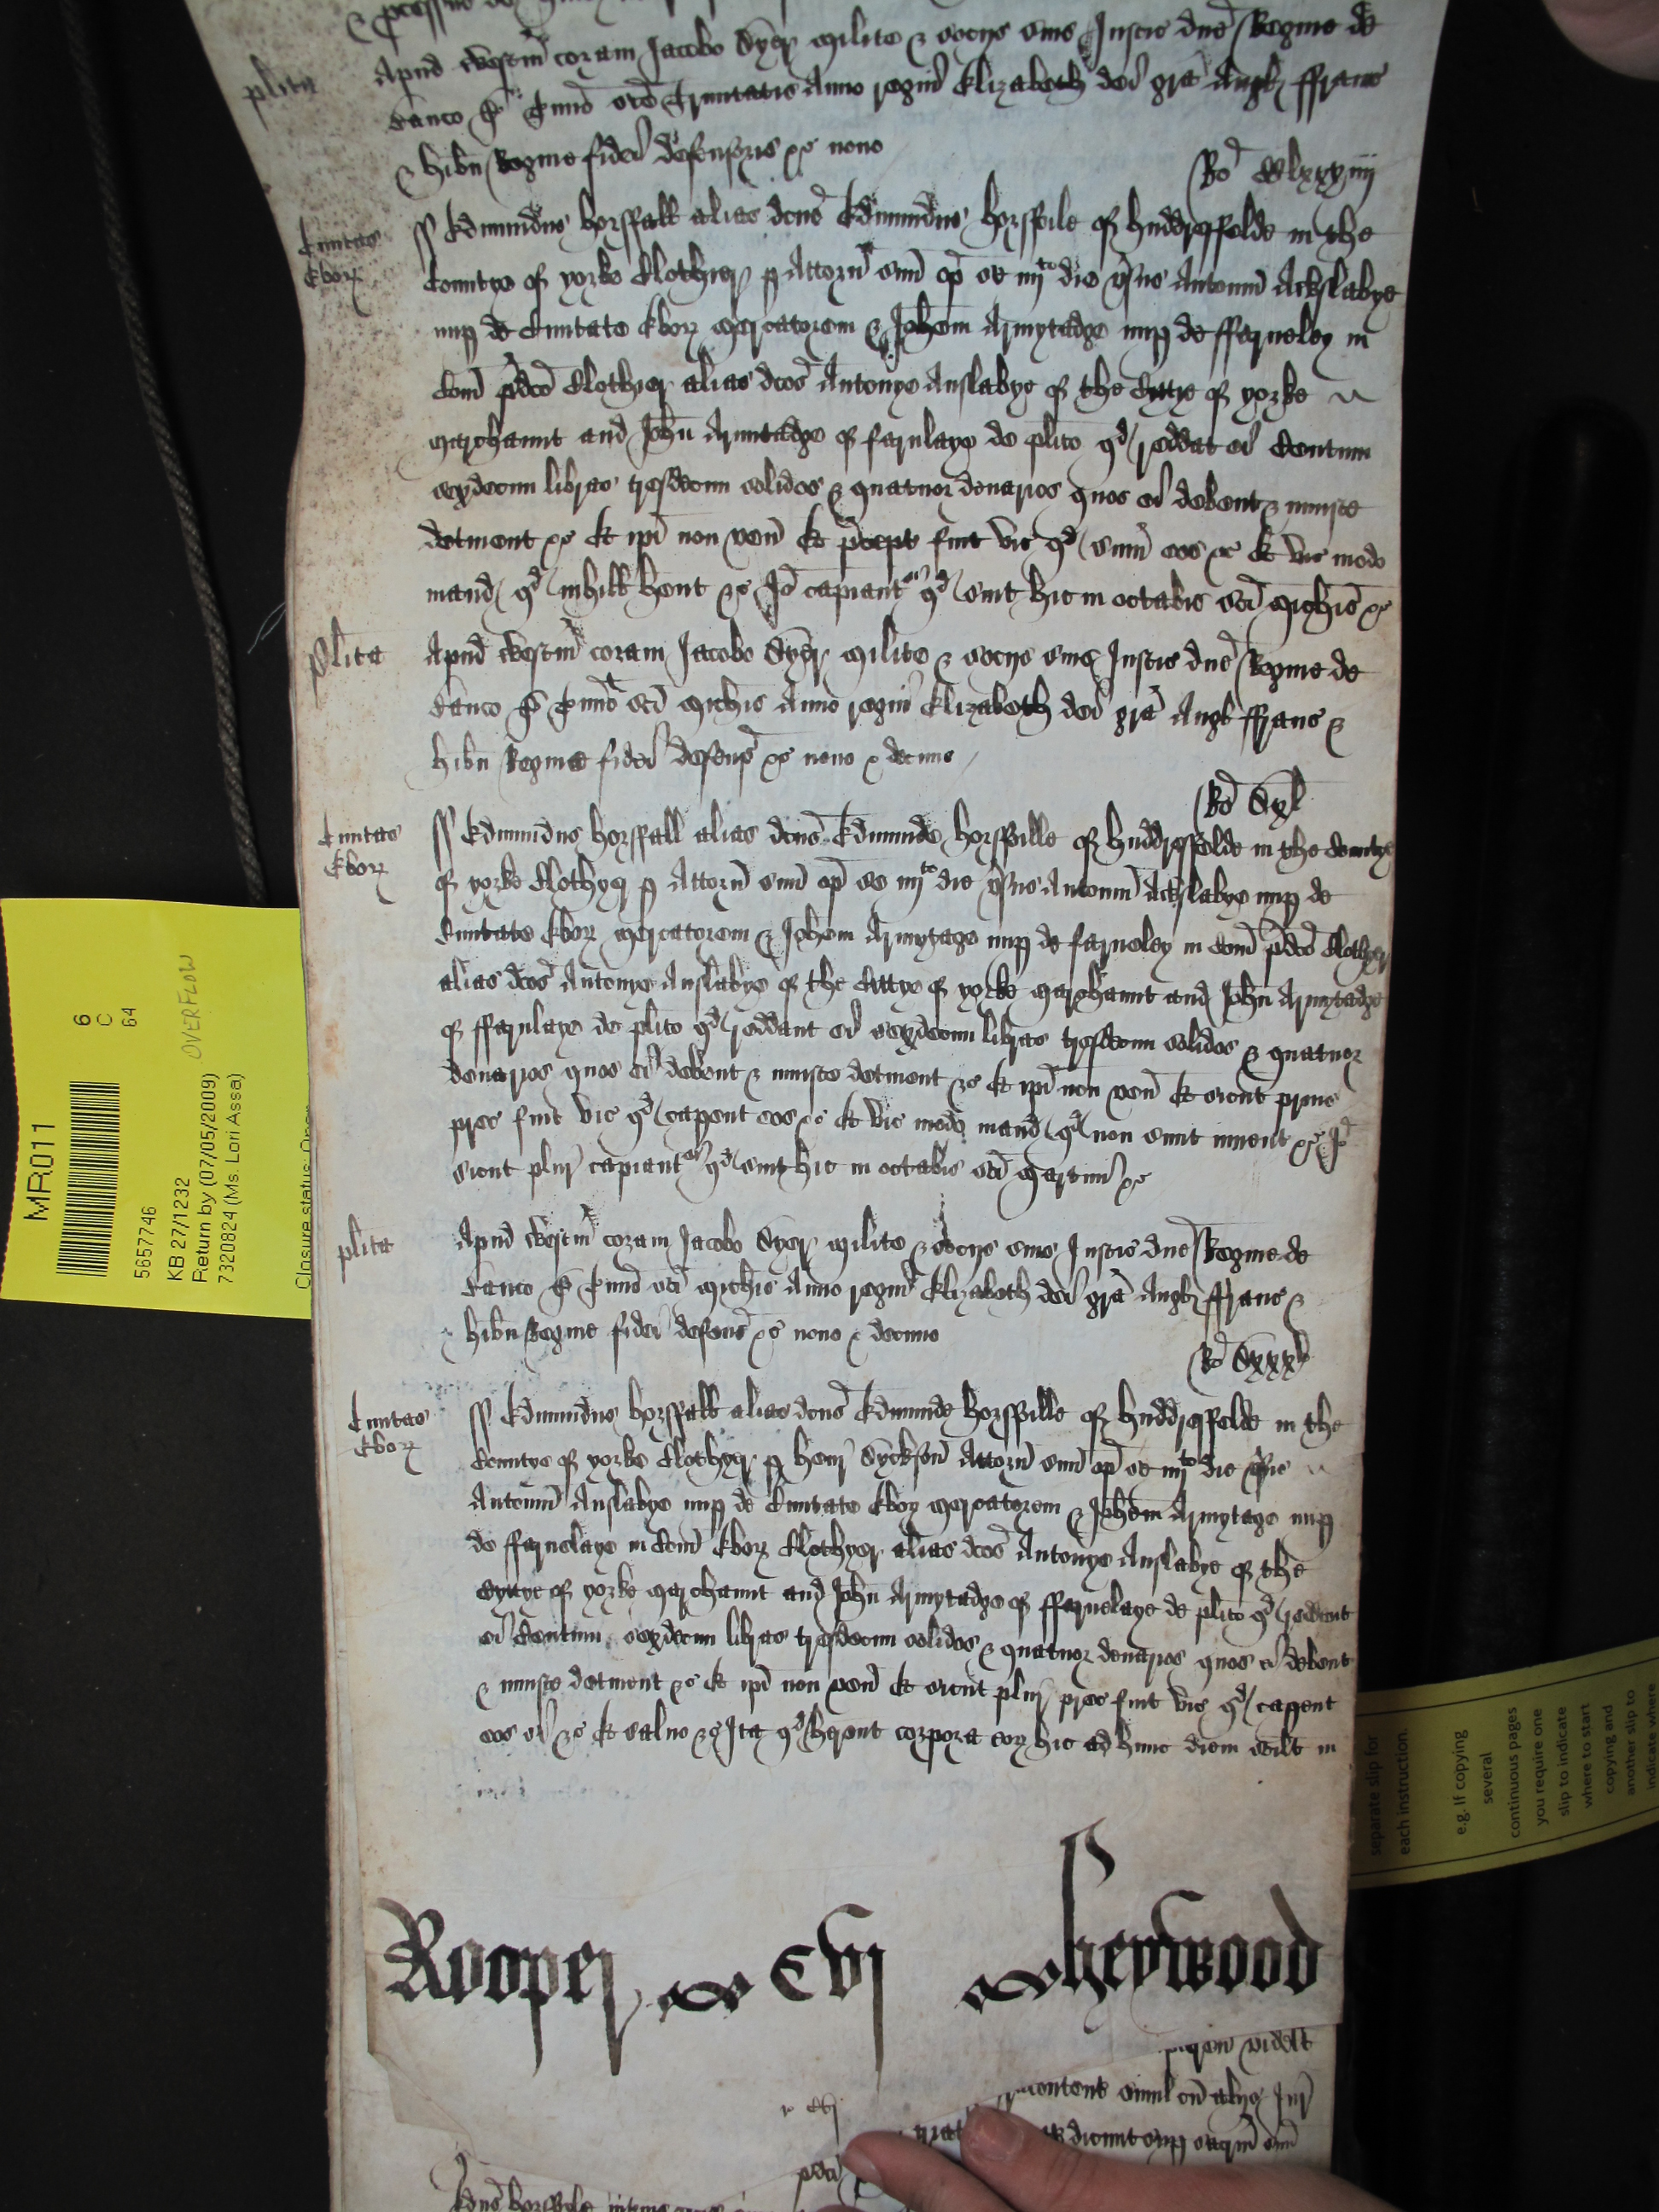 plita Apud Westm coram Jacobo Dyer milite & socijs suis Justic dne Regine de
Banco de Termino sce Trinitatis Anno regni Elizabeth dei gra Angl ffranc
& hibn Regine fidei defensoris &c nono
Ro
Civitas Ebor ss Edmundus horsfall alias dcus Edmundus horsfile of hudderffelde in the
Countye of yorke Clothier p Attorn suu op se iiijto die vsus Antoniu Ackslabye
nup de Civitate Ebor mercatorem & Johem Armytadge nup de ffarneley in
Com pdco Clother alias dcos Antonye Anslabye of the Cyttye of yorke
marchaunt and John Armtadge of farnlaye de plito qd reddat ei Centum
sexdecim libras tresdecim solidos & quatuor denarios quos ei debent & iniuste
detinent &c Et ipi non ven Et pcept fuit vic qd sum eos &c Et vic modo
mand qd nihill hent &c Jo capiantr qd sint hic in octabis sci Michis &c
Plita Apud Westm coram Jacobo Dyer milite & socijs suis Justic dne Regine de
Banco de Termino sci Michis Anno regni Elizabeth dei gra Angl ffranc &
hibn Regine fidei defens &c nono & decimo
Ro Dxl
Civitas Ebor ss Edmundus horsfall alias dcus Edmunde horsfille of hudderffelde in the Countye
of yorke Clothyer p Attorn suu op se iiijto die vsus Antoniu Ackslabye nup de
Civitate Ebor mercatorem & Johem Armytage nup de farneley in Com pdco Clother
alias dcos Antonye Anslabye of the Cyttye of yorke marchaunt and John Armytadge
of ffarnlaye de plito qd reddant ei sexdecim libras tresdecim solidos & quatuor
denarios quos ei debent & iniuste detinent &c Et ipi non ven Et sicut prius
prec fuit vic qd capent eos &c Et vic modo mand qd non sunt invent &c Jo
sicut plur capiantr qd sint hic in octabis sci Martini &c
plita Apud Westm coram Jacobo Dyer milite & socijs suis Justic dne Regine de
Banco de Termino sci Michis Anno regni Elizabeth dei gra Angl ffranc &
hibn Regine fidei defens &c nono & decimo
Ro
Civitas Ebor ss Edmundus horsfall alias dcus Edmunde horsfille of hudderffelde in the
Countye of yorke Clothyer p henr Dyckson Attorn suu op se iiijto die vsus
Antoniu Anslabye nup de Civitate Ebor mercatorem & Johem Armytage nup
de ffarnelaye in Com Ebor Clothyer alias dcos Antonye Anslabye of the
Cyttye of yorke marchaunt and John Armytadge of ffarnelaye de plito qd reddant
ei Centum sexdecim libras tresdecim solidos & quatuor denarios quos ei debent
& iniuste detinent &c Et ipi non ven Et sicut plur prec fuit vic qd capent
eos si &c Et salvo &c Ita qd heant corpora eor hic ad hunc diem scilt in
Rooper Cvj heywood
MR011
6
C
64
OVERFLOW
5657746
KB 27/1232
Return by (07/05/2009)
7320824 (Ms. Lori Assa)
Closure status: Open
separate slip for
each instruction.
e.g. If copying
several
continuous pages
you require one
slip to indicate
where to start
copying and
another slip to
indicate where